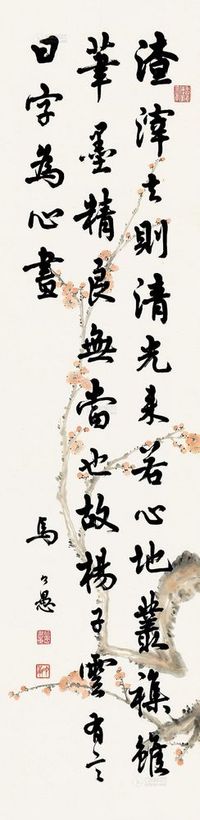 渣滓去則清光来若心地叢襍雖
筆墨精良無當也故楊子雲有言
曰字為心畫
馬公愚